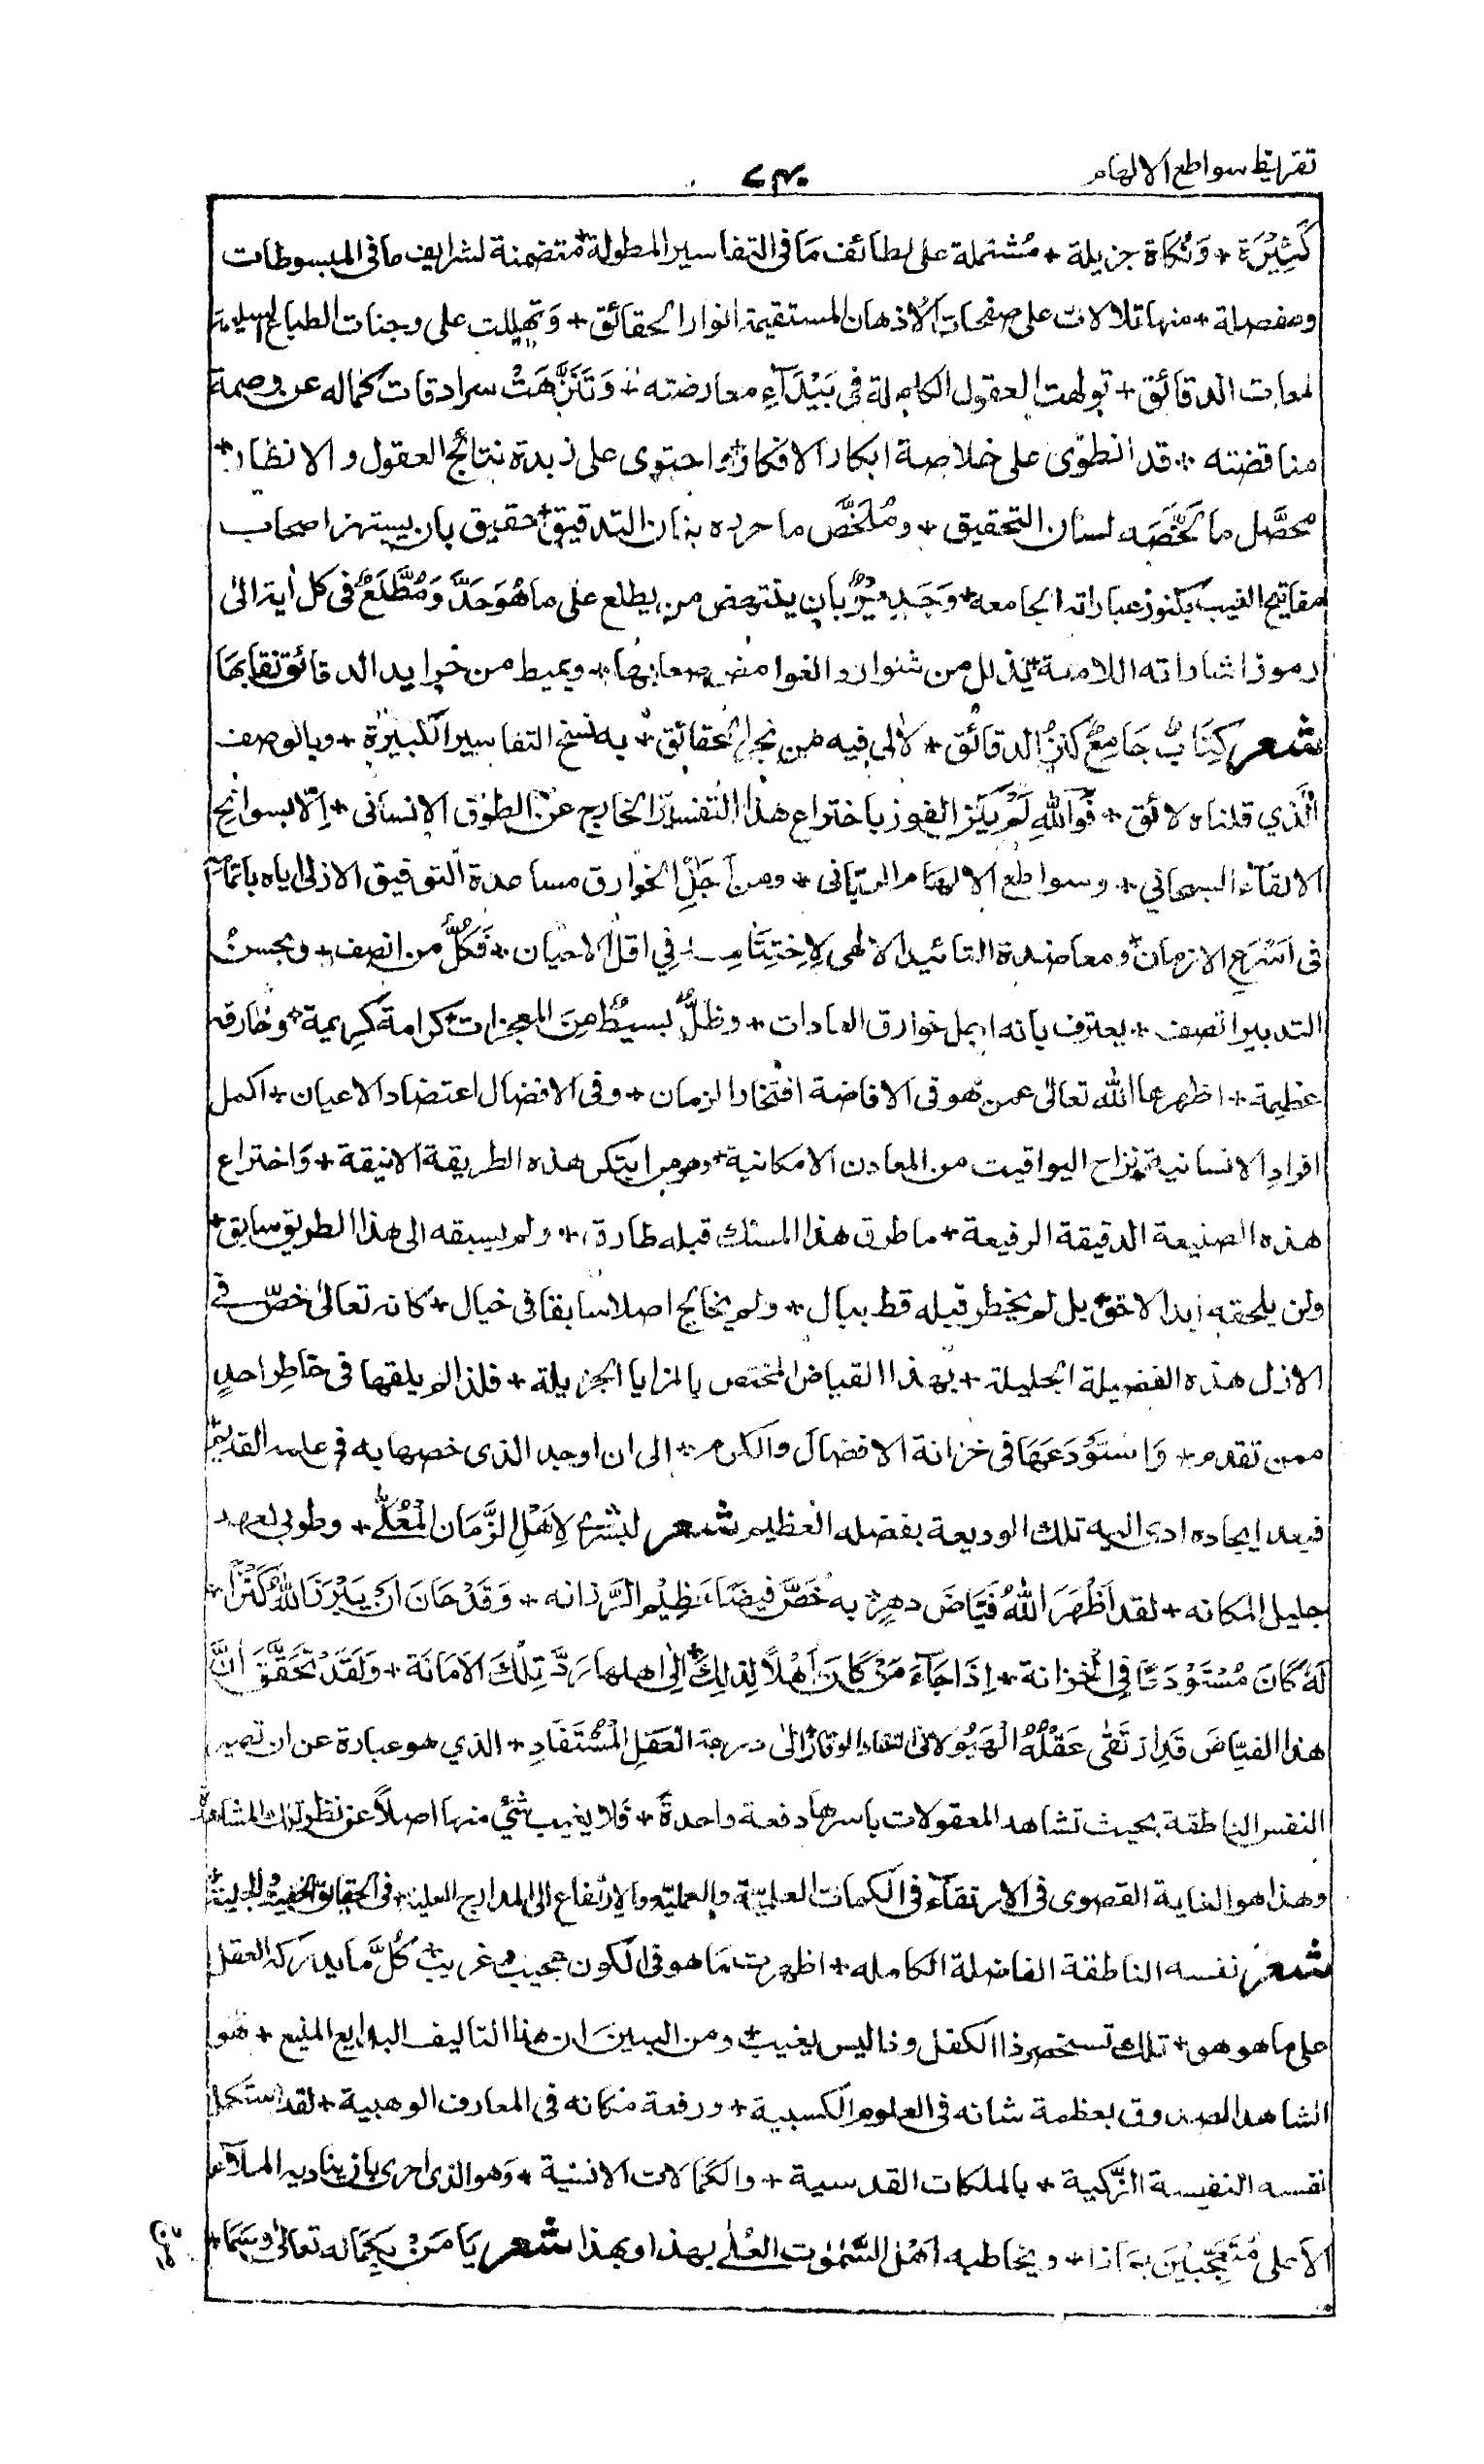 تقريظ سواطع الالهام
كَثِيْرَة + وَنُكاة جزيلة + مُشتملة على لطائف مَا فى التفاسير المطولة + متضمنة لشرايف ما فى المبسوطات
ومفصلة + منها تلالات على صفحات الاذهان المستقيمة انوار الحقائق + وَتهللت على وجنات الطبايع السليمة
لمعات الدقائق + تولهت العقول الكاملة فى بَيْدَآءِ معارضته + وَتَنَزَّهَتْ سرادقات كماله عن وصمة
مناقضته + قد انطوى على خلاصة ابكار الافكار + واحتوى على زبدة نتائج العقول و الانظار +
محصَّل ما لَخَّصَه لسان التحقيق + ومُلَخَّص ما حرده بنان التدقيق + حقيق بان يستهز اصحاب
مفاتيح الغيب بكنوز عباراته الجامعه + وَجَدِيْرٌ بان ينتهض من يطلع على ما هُوَ حَدٌّ وَمُطَّلَعٌ فى كل أية الىٰ
رموز اشاراته اللامعة + يذلل من شوارد الغوامض صعابها + ويميط من خرايد الدقائق نقابهَا
شعر كِتَابٌ جَامِعٌ كنزُ الدقائق + لأٰلى فيه من بحر الحقائق + به نسخ التفاسير الكبيرة + وبالوصف
الَّذي قلناه لائق + فَوَاللهِ لَمْ يَكن الفوز باختراع هذا التفسير الخارج عن الطوق الانسانى + اِلّا بسوانح
الالقآء السبحاني + وسواطع الالهام الربّانى + ومن اَجَلِّ الخوارق مساعدة التوفيق الازلى اياه باتمامه
فى اَسْرَعِ الازمان + ومعاضدة التائيد الالهى لِاِختِتَامِه فِي اقل الاحيان + فَكُلُّ من انصف + وبحسن
التدبير اتصف + يعترف بانه اجمل خوارق العادات + وظلٌّ بسيطٌ مِنَ المعجزات + كرامة كريمة + وخارقه
عظيمة + اظهرها الله تعالىٰ عمن هو فى الافاضة افتخار الزمان + وفى الافضال اعتضاد الاعيان + اكمل
افرادِ الانسانية + نزاح اليواقيت من المعادن الامكانية + وهو مبتكر هذه الطريقة الانيقة + وَاختراع
هذه الصنيعة الدقيقة الرفيعة + ما طرق هذا المسلك قبله طارق + ولم يسبقه الى هذا الطريق سابق +
ولن يلحقه ابدا لاحق + بل لم يخطر قبله قط ببال + ولم يخالج اصلا سابقا فى خيال + كانه تعالىٰ خصّ فى
الازل هذه الفضيلة الجليلة + بهذا الفياض المختص بالمزايا الجزيلة + فلذا لم يلقها فى خاطِر احدٍ
ممن تقدم + وَاستَوْدَعَهَا فى خزانة الافضال والكرم + الى ان اوجد الذى خصها به فى علمه القديم +
فبعد ايجاده ادى اليه تلك الوديعة بفضله العظيم شعر لبشرى لِاَهْلِ الزَّمَان الْمُعَلّٰى + وطوبى لعهد
جليل المكانه + لقد اَظْهَرَ اللهُ فَيَّاضَ دهرٍ + به خُصَّ فيضًا عَظِيْم الرَّزانه + وَقَدْ حَانَ اَنْ يَبْرزَ اللهُ كَنْزًا +
لَهُ كَانَ مُسْتَوْدَعًا فِي الْخزانة + اِذَا جَآءَ مَنْ كَانَ اَهْلًا لِذلِكَ + اِلىٰ اهلها رَدَّ تِلْكَ الامَانَة + وَلَقَدْ تَحَقَّقَ اَنَّ
هذا الفيّاضَ قَدِ ارْتَقٰى عَقْلُهُ الْهَيُوْلانى النقاد الوقاد الىٰ درجة الْعَقلِ الْمُسْتَفَادِ + الذي هو عبارة عن ان تصير
النفس الناطقة بحيث تشاهد المعقولات باسرها دفعة واحدةً + فَلا يغيب شئٌ منها اصلاً عن نظر تلك المشاهدة
وهذا هو الغاية القصوى فى الارتقآء فى الكمالات العلميّة والعمليّة والارتفاع الى المدارج العلية + فى الحقايق الخفية والجلية +
شعر نفسه الناطقة الفاضلة الكامله + اظهرت مَا هو فى الكون عجيب وغريب + كُلَّ مَا يدركه العقل
على ما هو هو + تلك تستحضر ذا الكفل وذا ليس يغيب + ومن البين ان هذا التاليف البدايع المنيع + هو
الشاهد الصدوق بعظمة شانه فى العلوم الكسبية + ورفعة مكانه فى المعارف الوهبية + لقد استكمل
نفسه النفيسة الزَّكية + بالملكات القدسية + والكمالات الانسية + وَهو الذى احرى بان يناديه الملآء
الاعلى مُتَعَجِّبِيْنَ بمَاذا + ويخاطبه اهْل السَّمٰوٰت العُلٰى بهذا وبهذا شعر يَا مَنْ بِكَمَاله تعالىٰ وسَمَا +